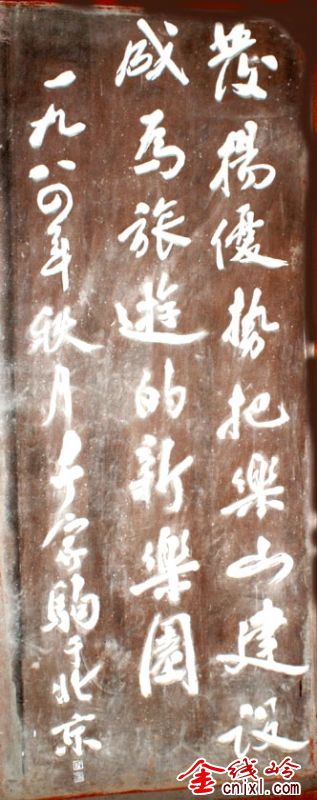 發揚優勢把樂山建設
成為旅遊的新樂園
一九八四年秋月千家駒于北京
金线岭